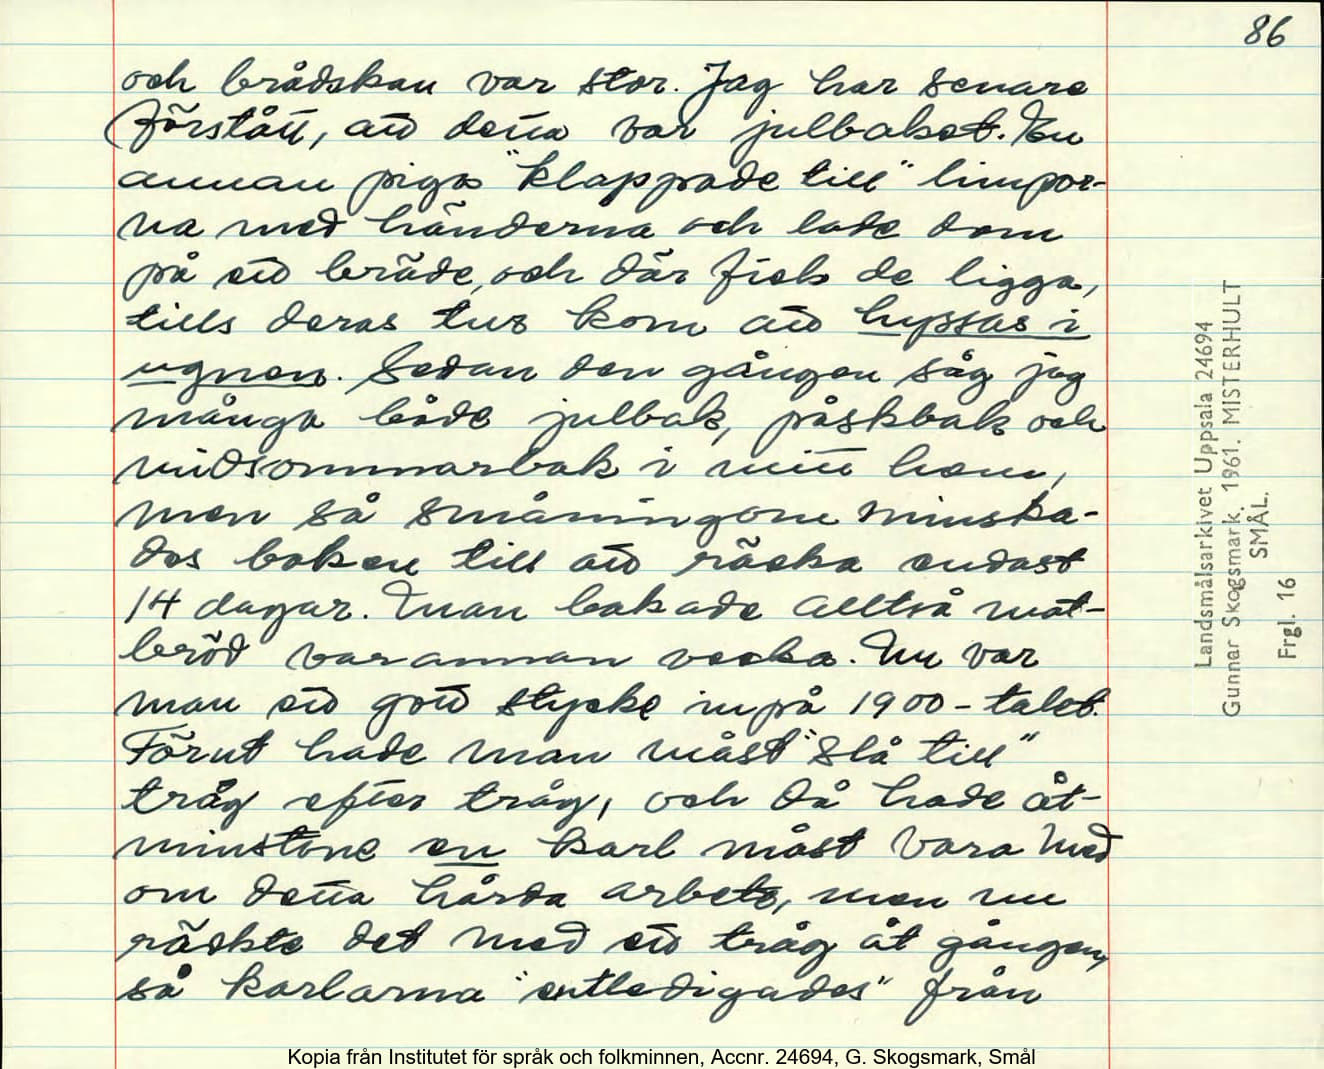 86
och brådskan var stor. Jag har senare
förstått, att detta var julbaket. En
annan piga "klappade till" limpor-
na med händerna och lade dom
på ett bräde, och där fick de ligga,
tills deras tur kom att hyssas i
ugnen. Sedan den gången såg jag
många både julbak, påskbak och
midsommarbak i mitt hem,
men så småningom minska-
des baken till att räcka endast
14 dagar. Man bakade alltså mat-
bröd varannan vecka. Nu var
man ett gott stycke inpå 1900-talet.
Förut hade man måst "slå till"
tråg efter tråg, och då hade åt-
minstone en karl måst vara med
om detta hårda arbete, men nu
räckte det med ett tråg åt gången,
så karlarna "entledigades" från
Landsmålsarkivet Uppsala 24694
Gunnar Skogsmark. 1961. MISTERHULT
SMÅL.
Frgl. 16
Kopia från Institutet för språk och folkminnen, Accnr. 24694, G. Skogsmark, Smål